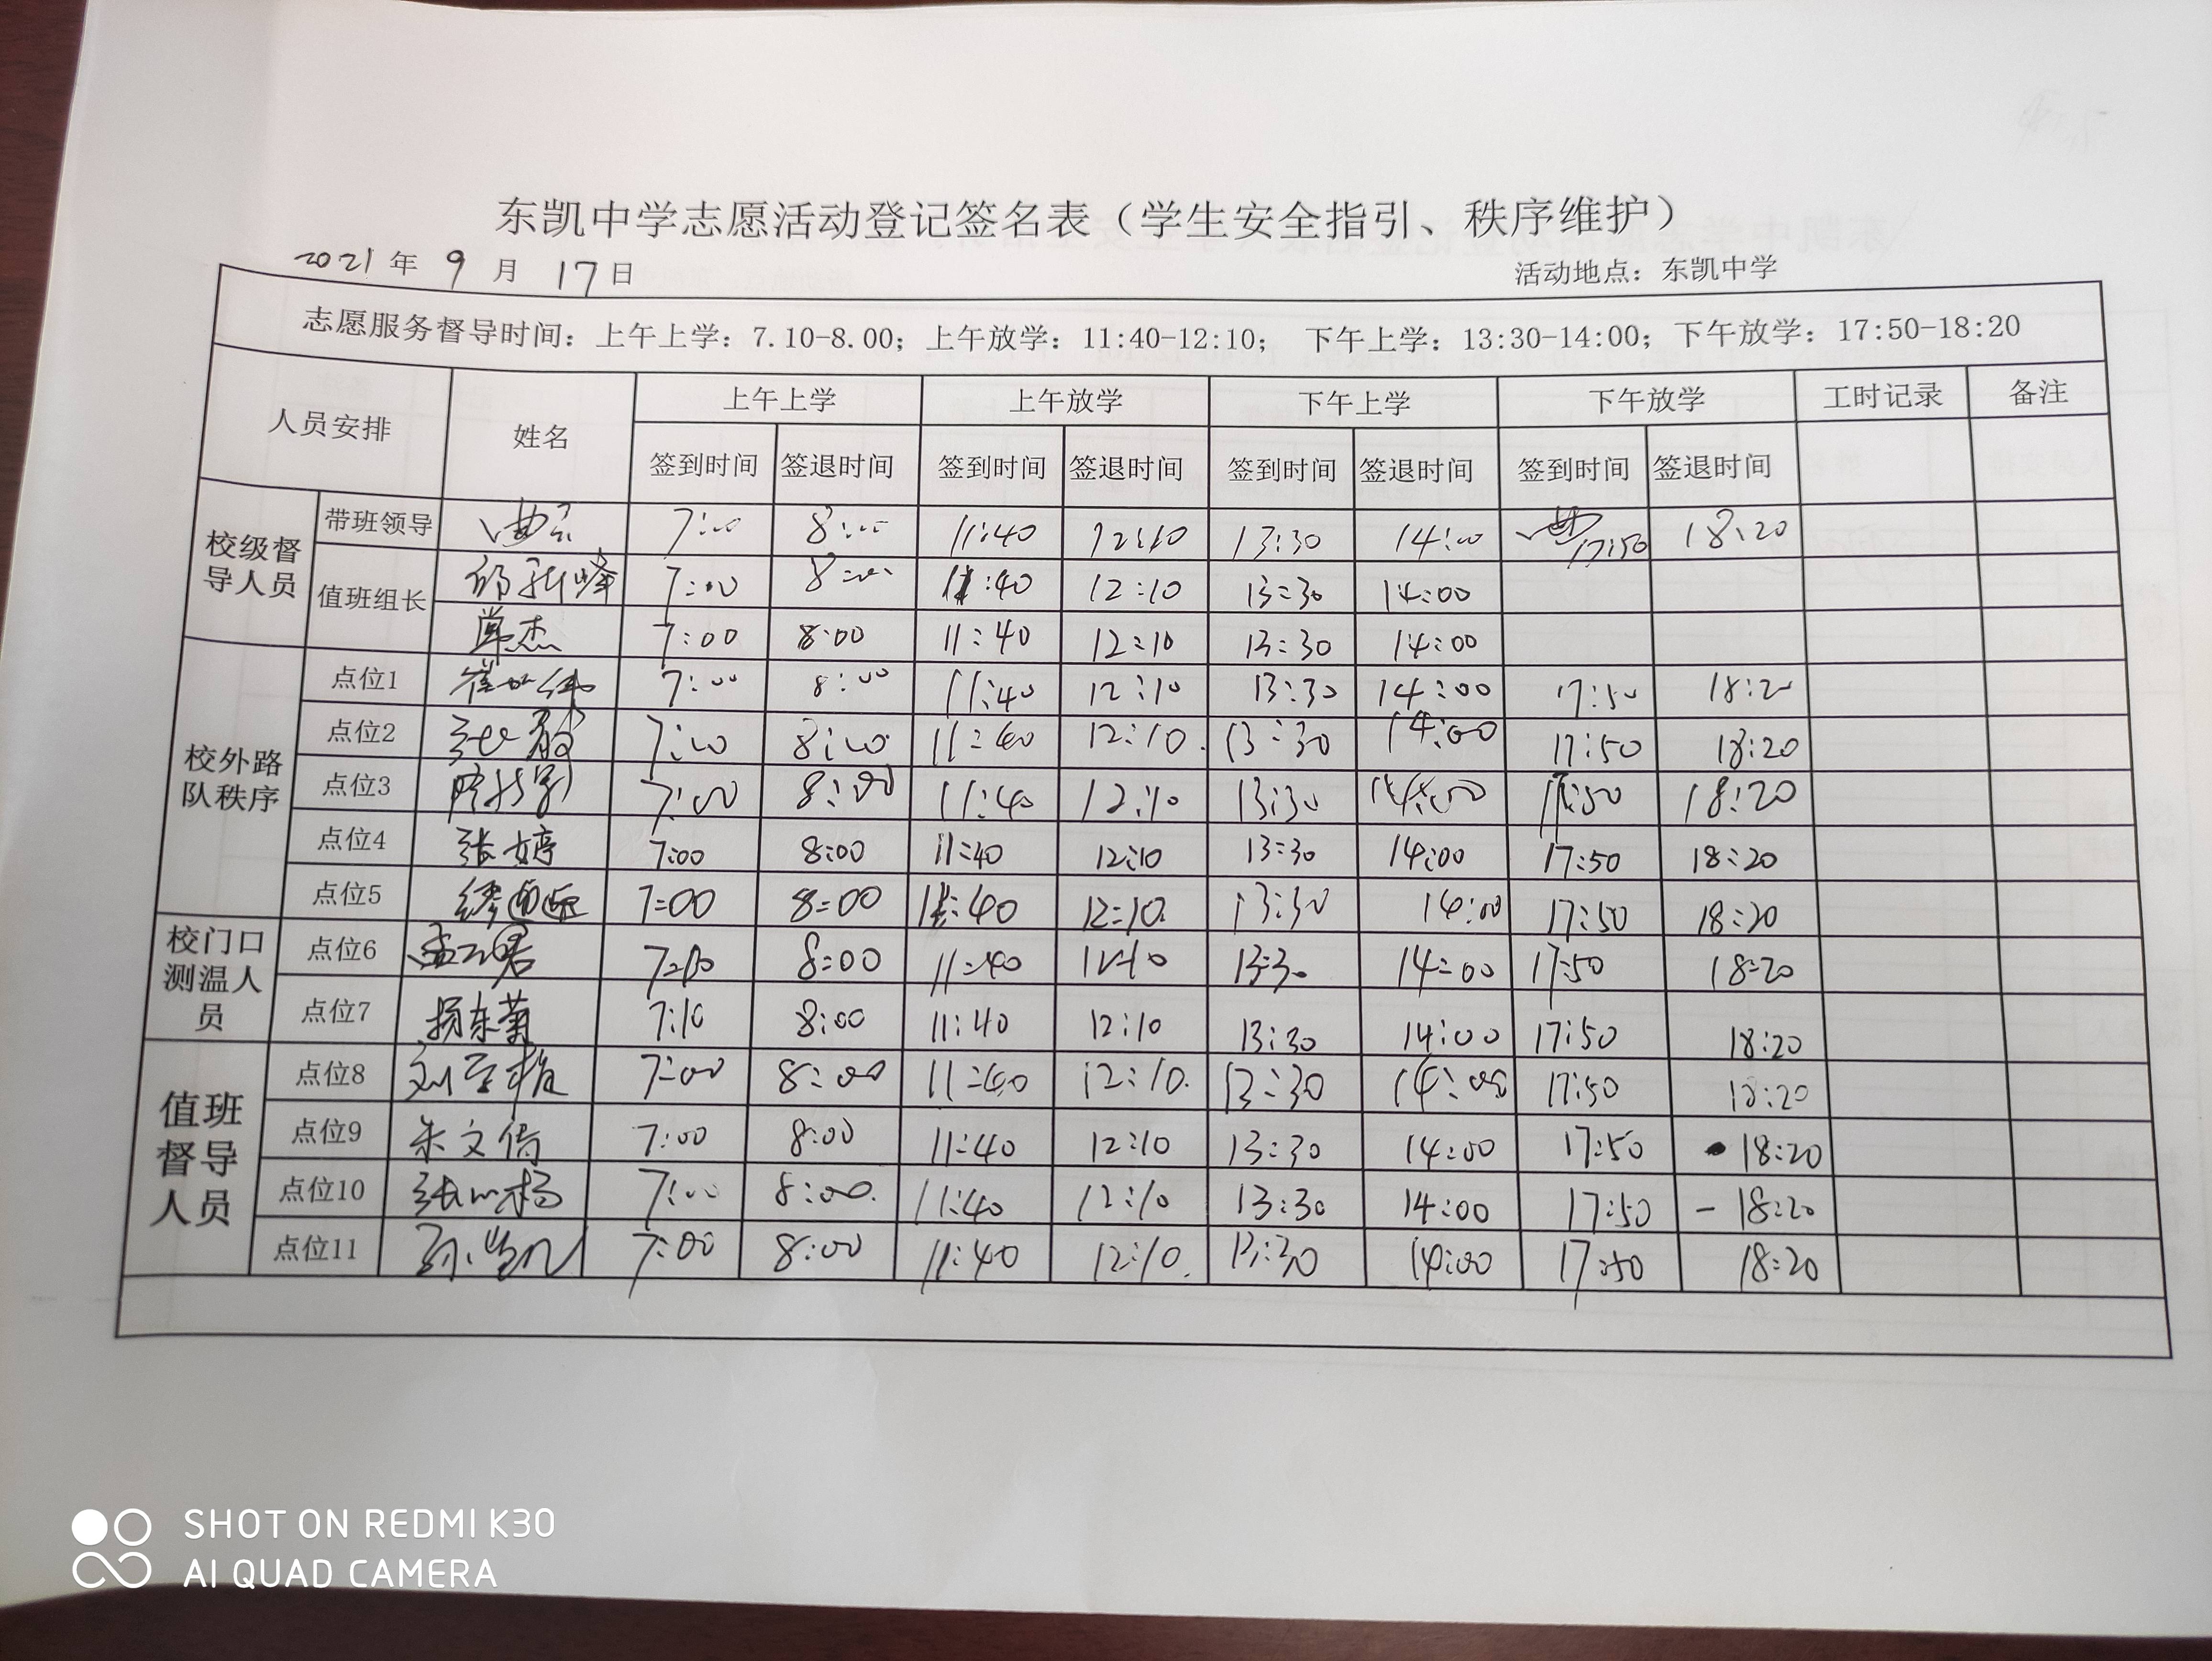 东凯中学志愿活动登记签名表（学生安全指引、秩序维护）
2021年 9 月 17日 活动地点：东凯中学
志愿服务督导时间：上午上学：7.10-8.00；上午放学：11:40-12:10； 下午上学：13:30-14:00；下午放学：17:50-18:20
人员安排 姓名 上午上学 上午放学 下午上学 下午放学 工时记录 备注
签到时间 签退时间 签到时间 签退时间 签到时间 签退时间 签到时间 签退时间
校级督导人员 带班领导 7:00 8:00 11:40 12:10 13:30 14:00 17:50 18:20
值班组长 7:00 8:00 11:40 12:10 13:30 14:00
7:00 8:00 11:40 12:10 13:30 14:00
校外路队秩序 点位1 7:00 8:00 11:40 12:10 13:30 14:00 17:50 18:20
点位2 7:00 8:00 11:40 12:10. 13:30 14:00 17:50 18:20
点位3 7:00 8:00 11:40 12:10 13:30 14:00 17:50 18:20
点位4 张婷 7:00 8:00 11:40 12:10 13:30 14:00 17:50 18:20
点位5 7:00 8:00 11:40 12:10. 13:30 14:00 17:50 18:20
校门口测温人员 点位6 8:00 11:40 12:10 13:30 14:00 17:50 18:20
点位7 杨东菊 7:10 8:00 11:40 12:10 13:30 14:00 17:50 18:20
值班督导人员 点位8 7:00 8:00 11:40 12:10. 13:30 14:00 17:50 18:20
点位9 朱文倩 7:00 8:00 11:40 12:10 13:30 14:00 17:50 18:20
点位10 7:00 8:00. 11:40 12:10 13:30 14:00 17:50 - 18:20
点位11 7:00 8:00 11:40 12:10. 13:30 14:00 17:50 18:20
SHOT ON REDMI K30
AI QUAD CAMERA